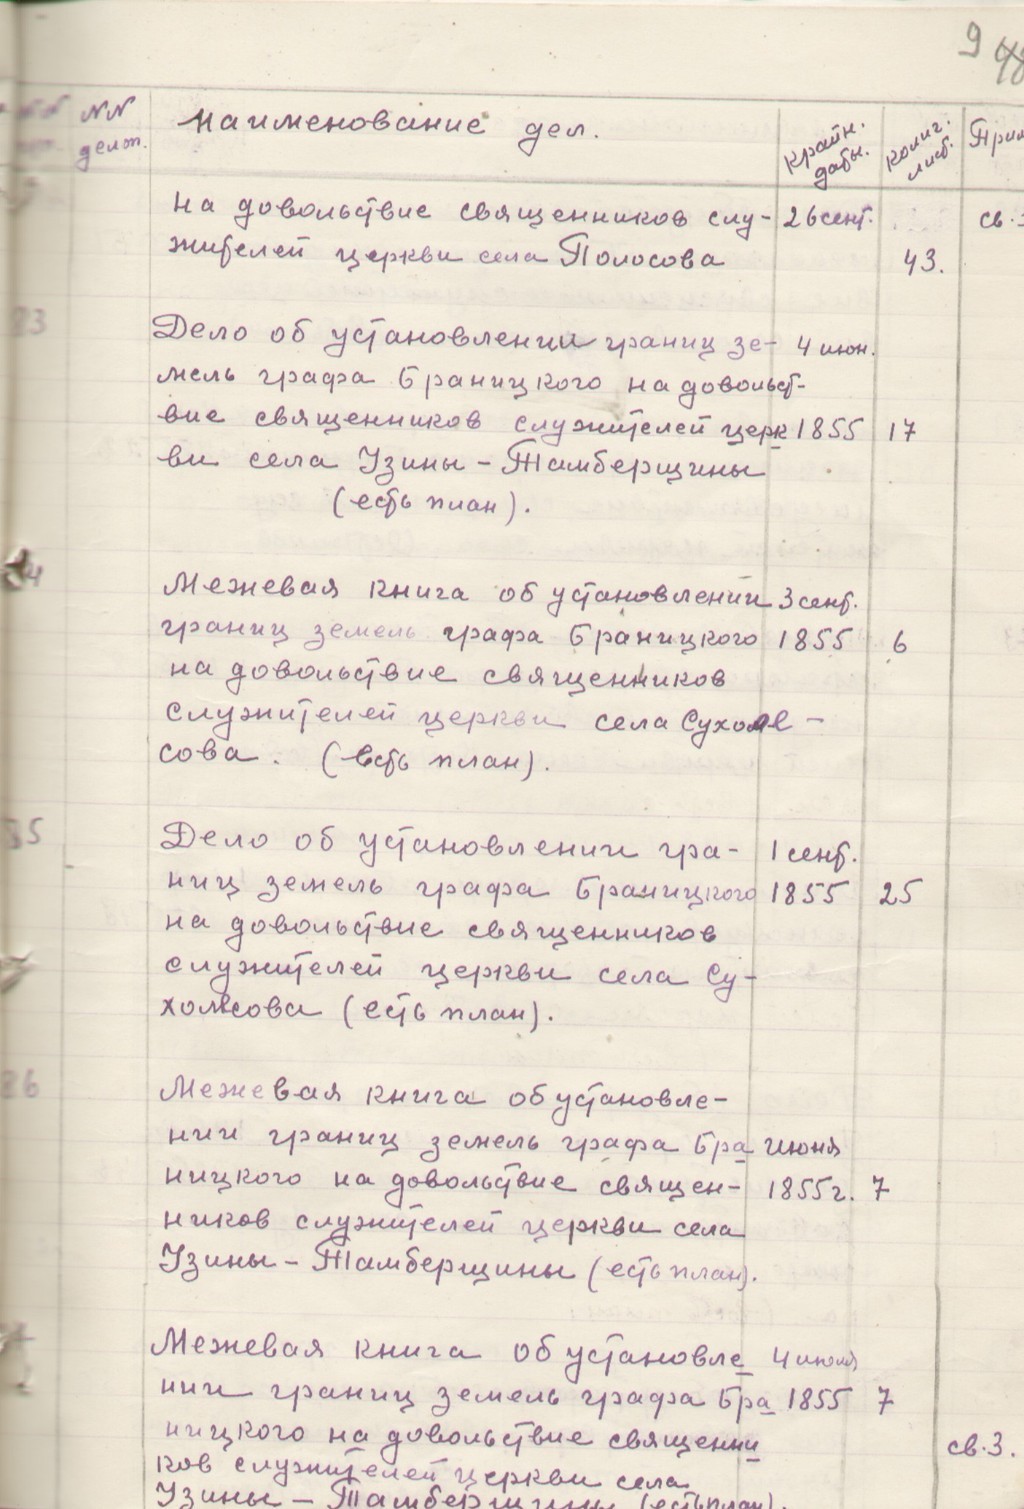 9 48
NN делоп. Наименование дел. Крайн. даты. Колич. лист. Прим
на довольствие священников слу- 26 сент. св.
жителей церкви села Полосова 43.
83 Дело об установлении границ зе- 4 июн.
мель графа Браницкого на довольст-
вие священников служителей церк 1855 17
ви села Узины - Тамберщины
(есть план).
84 Межевая книга об установлении 3 сент.
границ земель графа Браницкого 1855 6
на довольствие священников
служителей церкви села Сухоле-
сова. (есть план).
85 Дело об установлении гра- 1 сент.
ниц земель графа Браницкого 1855 25
на довольствие священников
служителей церкви села Су-
холесова (есть план).
86 Межевая книга об установле-
нии границ земель графа Бра июня
ницкого на довольствие священ- 1855г. 7
ников служителей церкви села
Узины - Тамберщины (есть план).
Межевая книга об установле 4 июля
нии границ земель графа Бра 1855 7
ницкого на довольствие священни св.3.
ков служителей церкви села
Узины - Тамберщины (есть план).